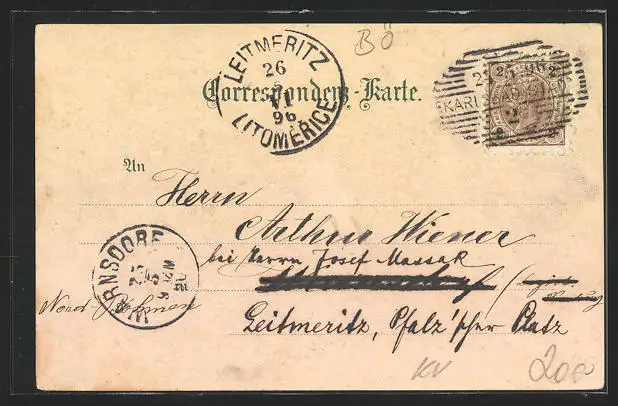 BÖ
LEITMERITZ
26
VI
96
LITOMĚŘICE
2 2
KARL
2 2
Correspondenz-Karte.
An
Herrn
Arthur Wiener
bei Herrn Josef Massak
WARNSDORF
Nord Böhmen
Leitmeritz, Pfalz'scher Platz
KV
200